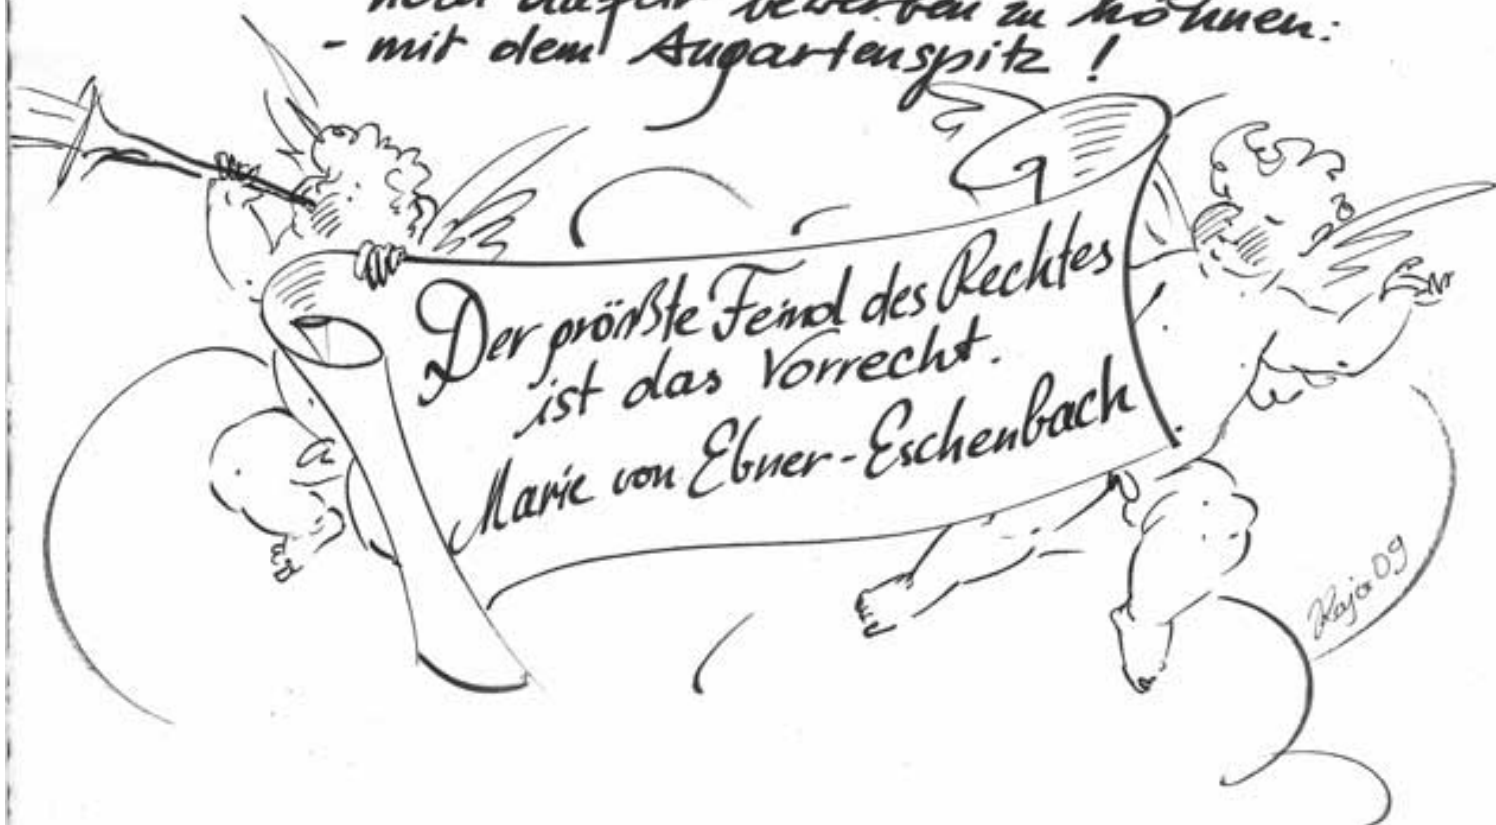 dafür bewerben zu können:
- mit dem Augartenspitz!
Der größte Feind des Rechtes
ist das Vorrecht.
Marie von Ebner-Eschenbach
09